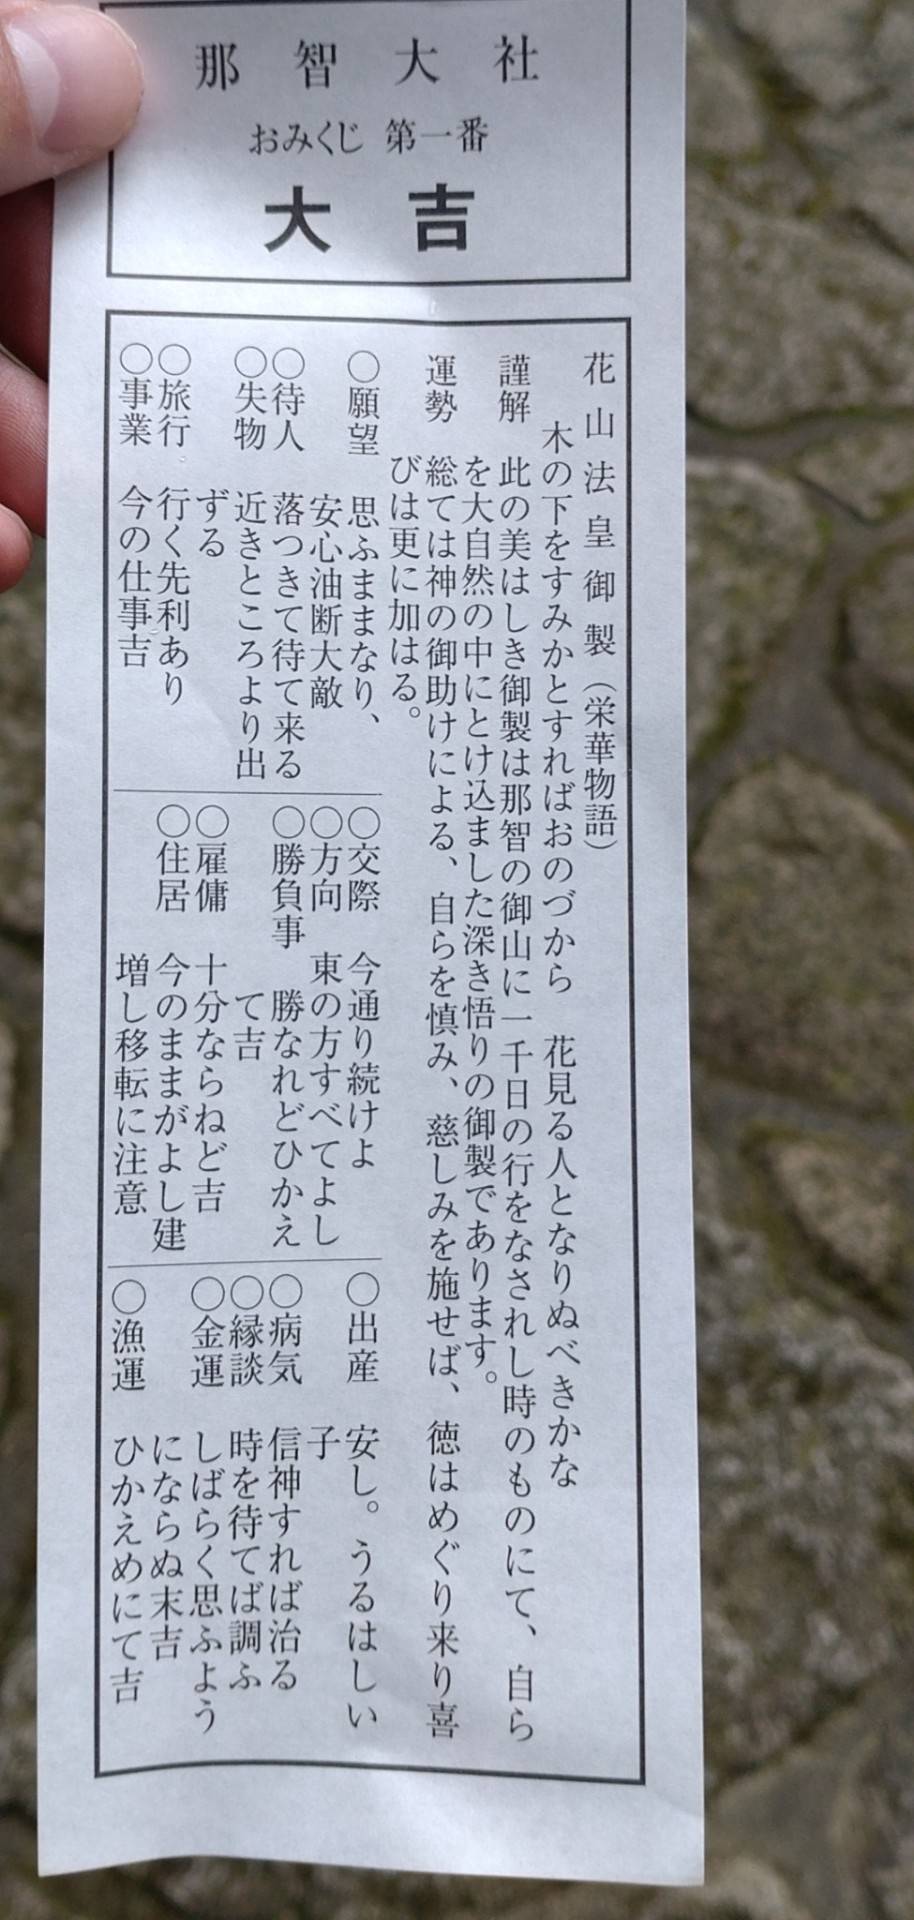 那智大社
おみくじ 第一番
大吉
花山法皇御製（栄華物語）
木の下をすみかとすればおのづから 花見る人となりぬべきかな
謹解 此の美はしき御製は那智の御山に一千日の行をなされし時のものにて、自ら
を大自然の中にとけ込ました深き悟りの御製であります。
運勢 総ては神の御助けによる、自らを慎み、慈しみを施せば、徳はめぐり来り喜
びは更に加はる。
○願望 思ふままなり、
安心油断大敵
○待人 落つきて待て来る
○失物 近きところより出
ずる
○旅行 行く先利あり
○事業 今の仕事吉
○交際 今通り続けよ
○方向 東の方すべてよし
○勝負事 勝なれどひかえ
て吉
○雇傭 十分ならねど吉
○住居 今のままがよし建
増し移転に注意
○出産 安し。うるはしい
子
○病気 信神すれば治る
○縁談 時を待てば調ふ
○金運 しばらく思ふよう
にならぬ末吉
○漁運 ひかえめにて吉